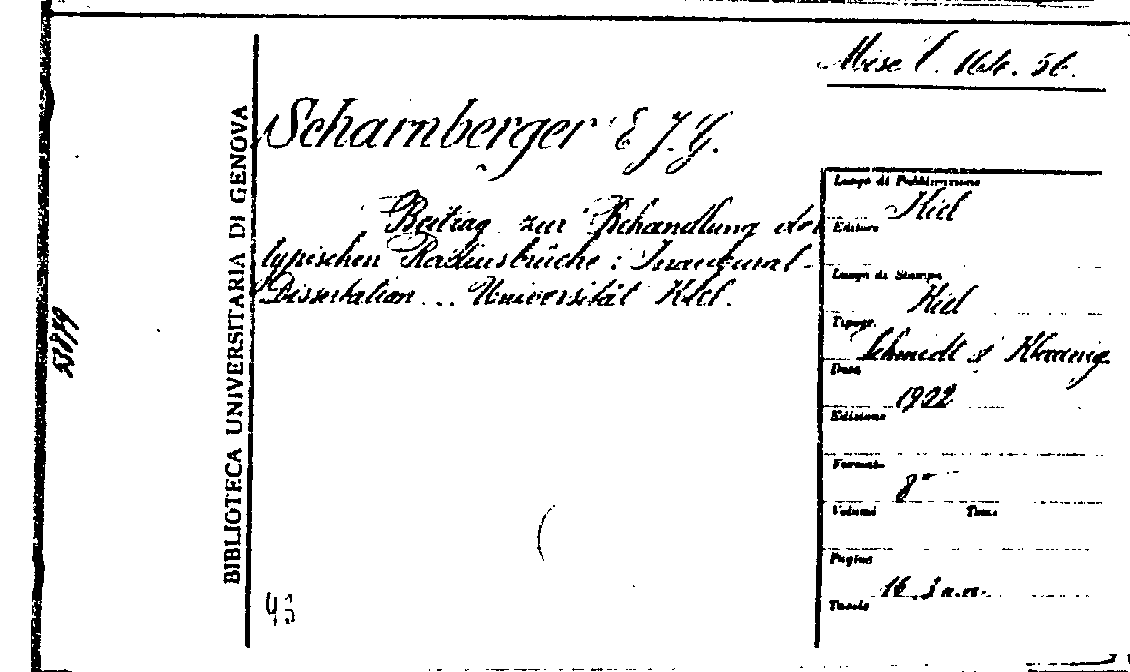 Misc. C. 56.
BIBLIOTECA UNIVERSITARIA DI GENOVA
Scharnberger E J. G.
Beitrag zur Behandlung der
typischen Radiusbrüche : Inaugural-
Dissertation... Universität Kiel.
Luogo di Pubblicazione
Kiel
Editore
Luogo di Stampa
Kiel
Tipogr.
Schmidt & Klaunig
Data
1922
Edizione
Formato
8°
Volumi Tomi
Pagine
16
Tavole